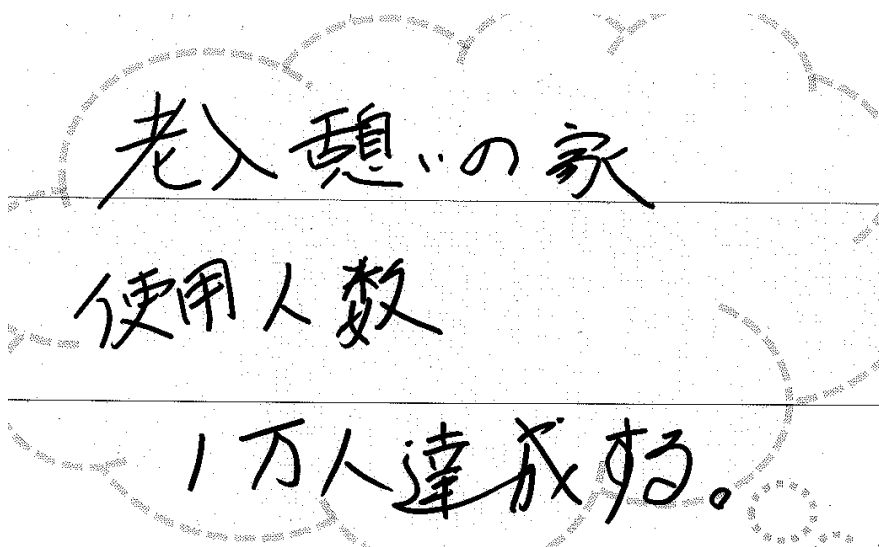 老人憩いの家
使用人数
1万人達成する。